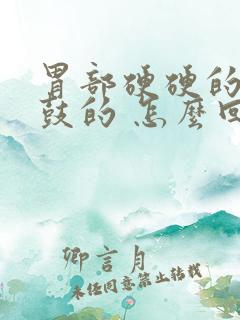 胃部硬硬的
鼓的 怎麼回
卿言月
未经同意禁止转载